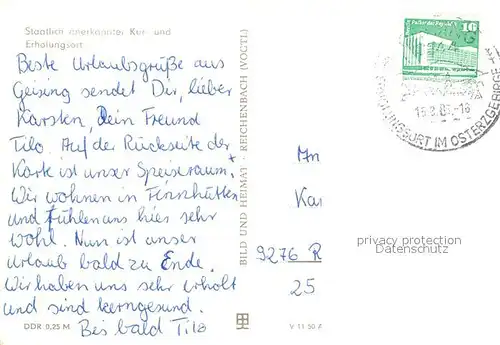 Staatlich anerkannter Kur- und
Erholungsort
Beste Urlaubsgrüße aus
Geising sendet Dir, lieber
Karsten, Dein Freund
Tilo. Auf der Rückseite der
Karte ist unser Speiseraum.
Wir wohnen in Finnhütten
und fühlen uns hier sehr
wohl. Nun ist unser
Urlaub bald zu Ende.
Wir haben uns sehr erholt
und sind kerngesund.
Bis bald Tilo
DDR 0,25 M
BILD UND HEIMAT · REICHENBACH (VOGTL)
16
IM OSTERZGEBIRGE
An
Ka
9276 R
25
privacy protection
Datenschutz
V 11 50 A